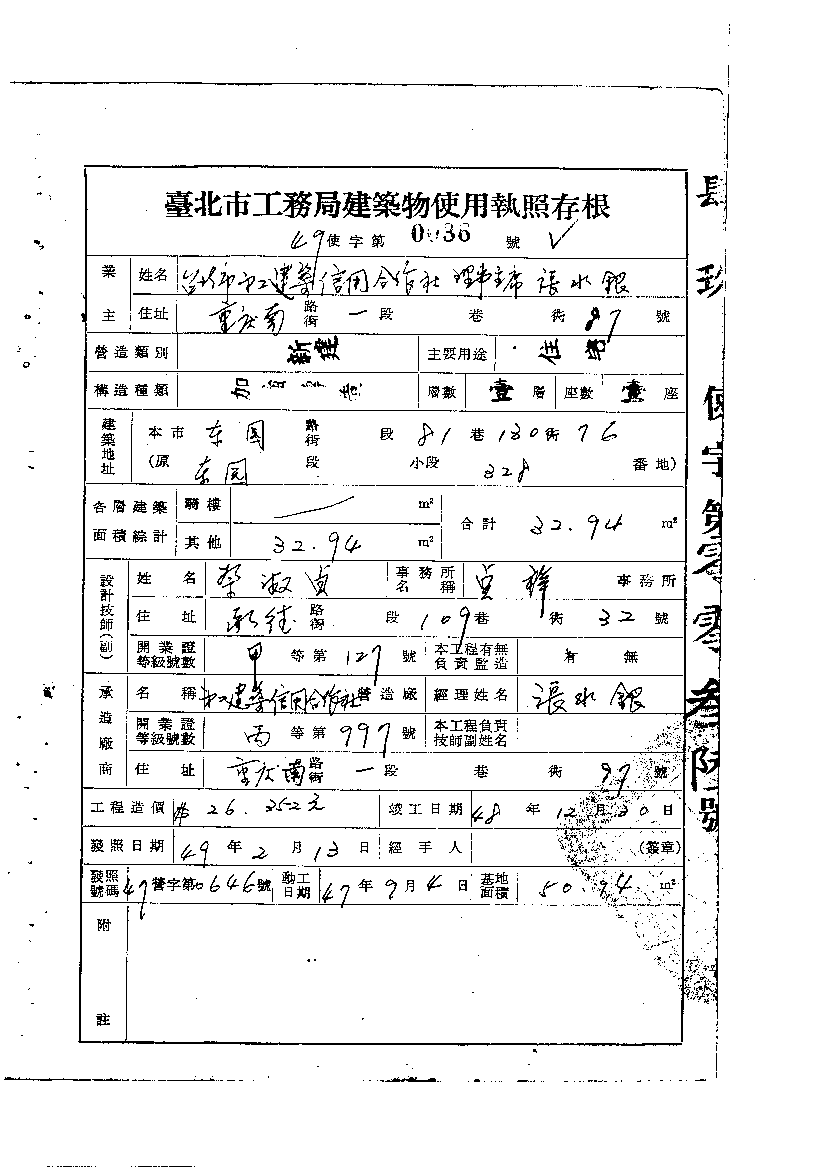 臺北市工務局建築物使用執照存根
49使字第 0036 號
業主 姓名 台北市市工建築信用合作社 理事主席 張水銀
住址 重庆南 路街 一段 巷 街 87 號
營造類別 新建 主要用途 住宅
構造種類 加 層數 壹層 座數 壹座
建築地址 本市 东园 路街 段 81巷 130街 76
(原 东园 段 小段 328 番地)
各層建築面積綜計 騎樓 m² 合計 32.94 m²
其他 32.94 m²
設計技師(副) 姓名 淑貞 事務所名稱 貞祥 事務所
住址 承德 路街 段 109巷 街 32 號
開業證等級號數 甲 等第 127 號 本工程有無負責監造 有 無
承造廠商 名稱 市工建築信用合作社 營造廠 經理姓名 張水銀
開業證等級號數 丙 等第 997 號 本工程負責技師副姓名
住址 重庆南 路街 一段 巷 街 97 號
工程造價 26.352元 竣工日期 48年12月30日
發照日期 49年2月13日 經手人 (簽章)
發照號碼 47營字第0646號 動工日期 47年9月4日 基地面積 50.94 m²
附註
肆玖使字第零零叁陸號